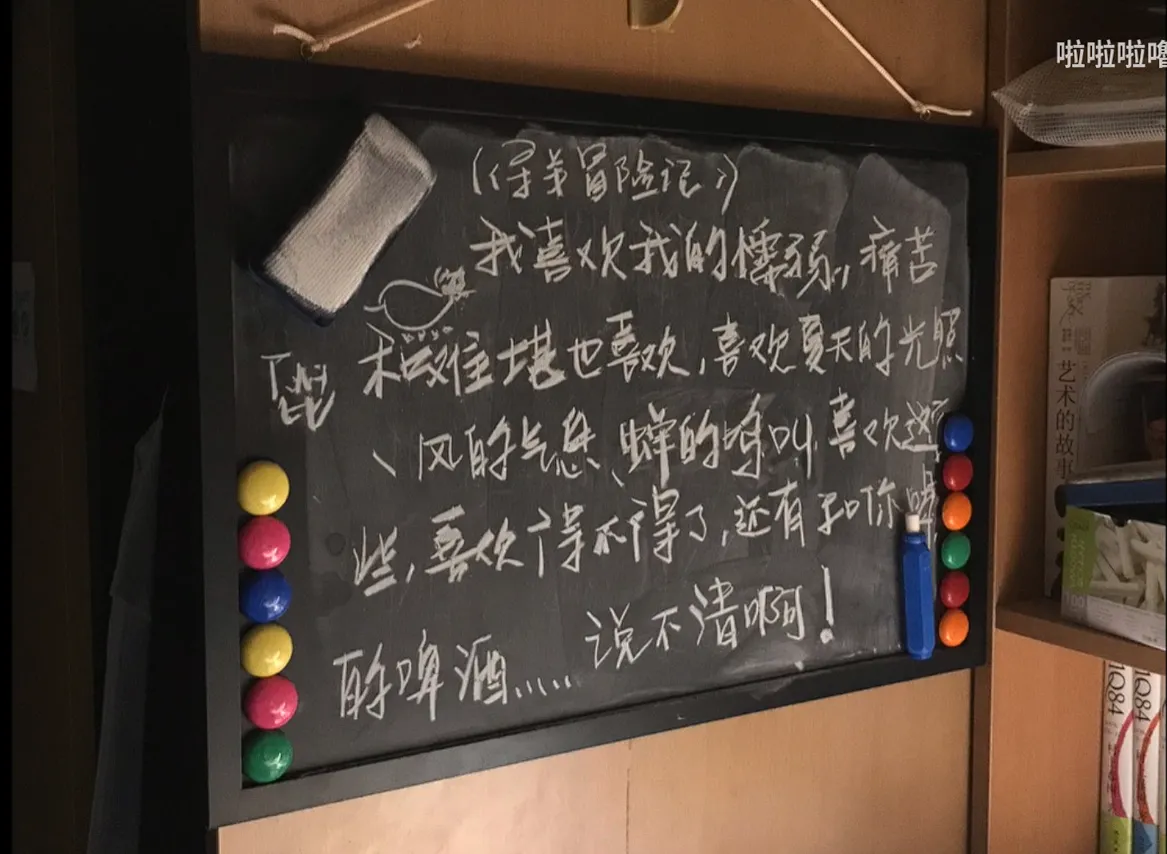 啦啦啦噜
《寻羊冒险记》
我喜欢我的懦弱,痛苦
和难堪也喜欢,喜欢夏天的光照
、风的气息、蝉的鸣叫,喜欢这
些,喜欢得不得了,还有和你喝
的啤酒.....说不清啊!
艺术的故事
1Q84
1Q84
100